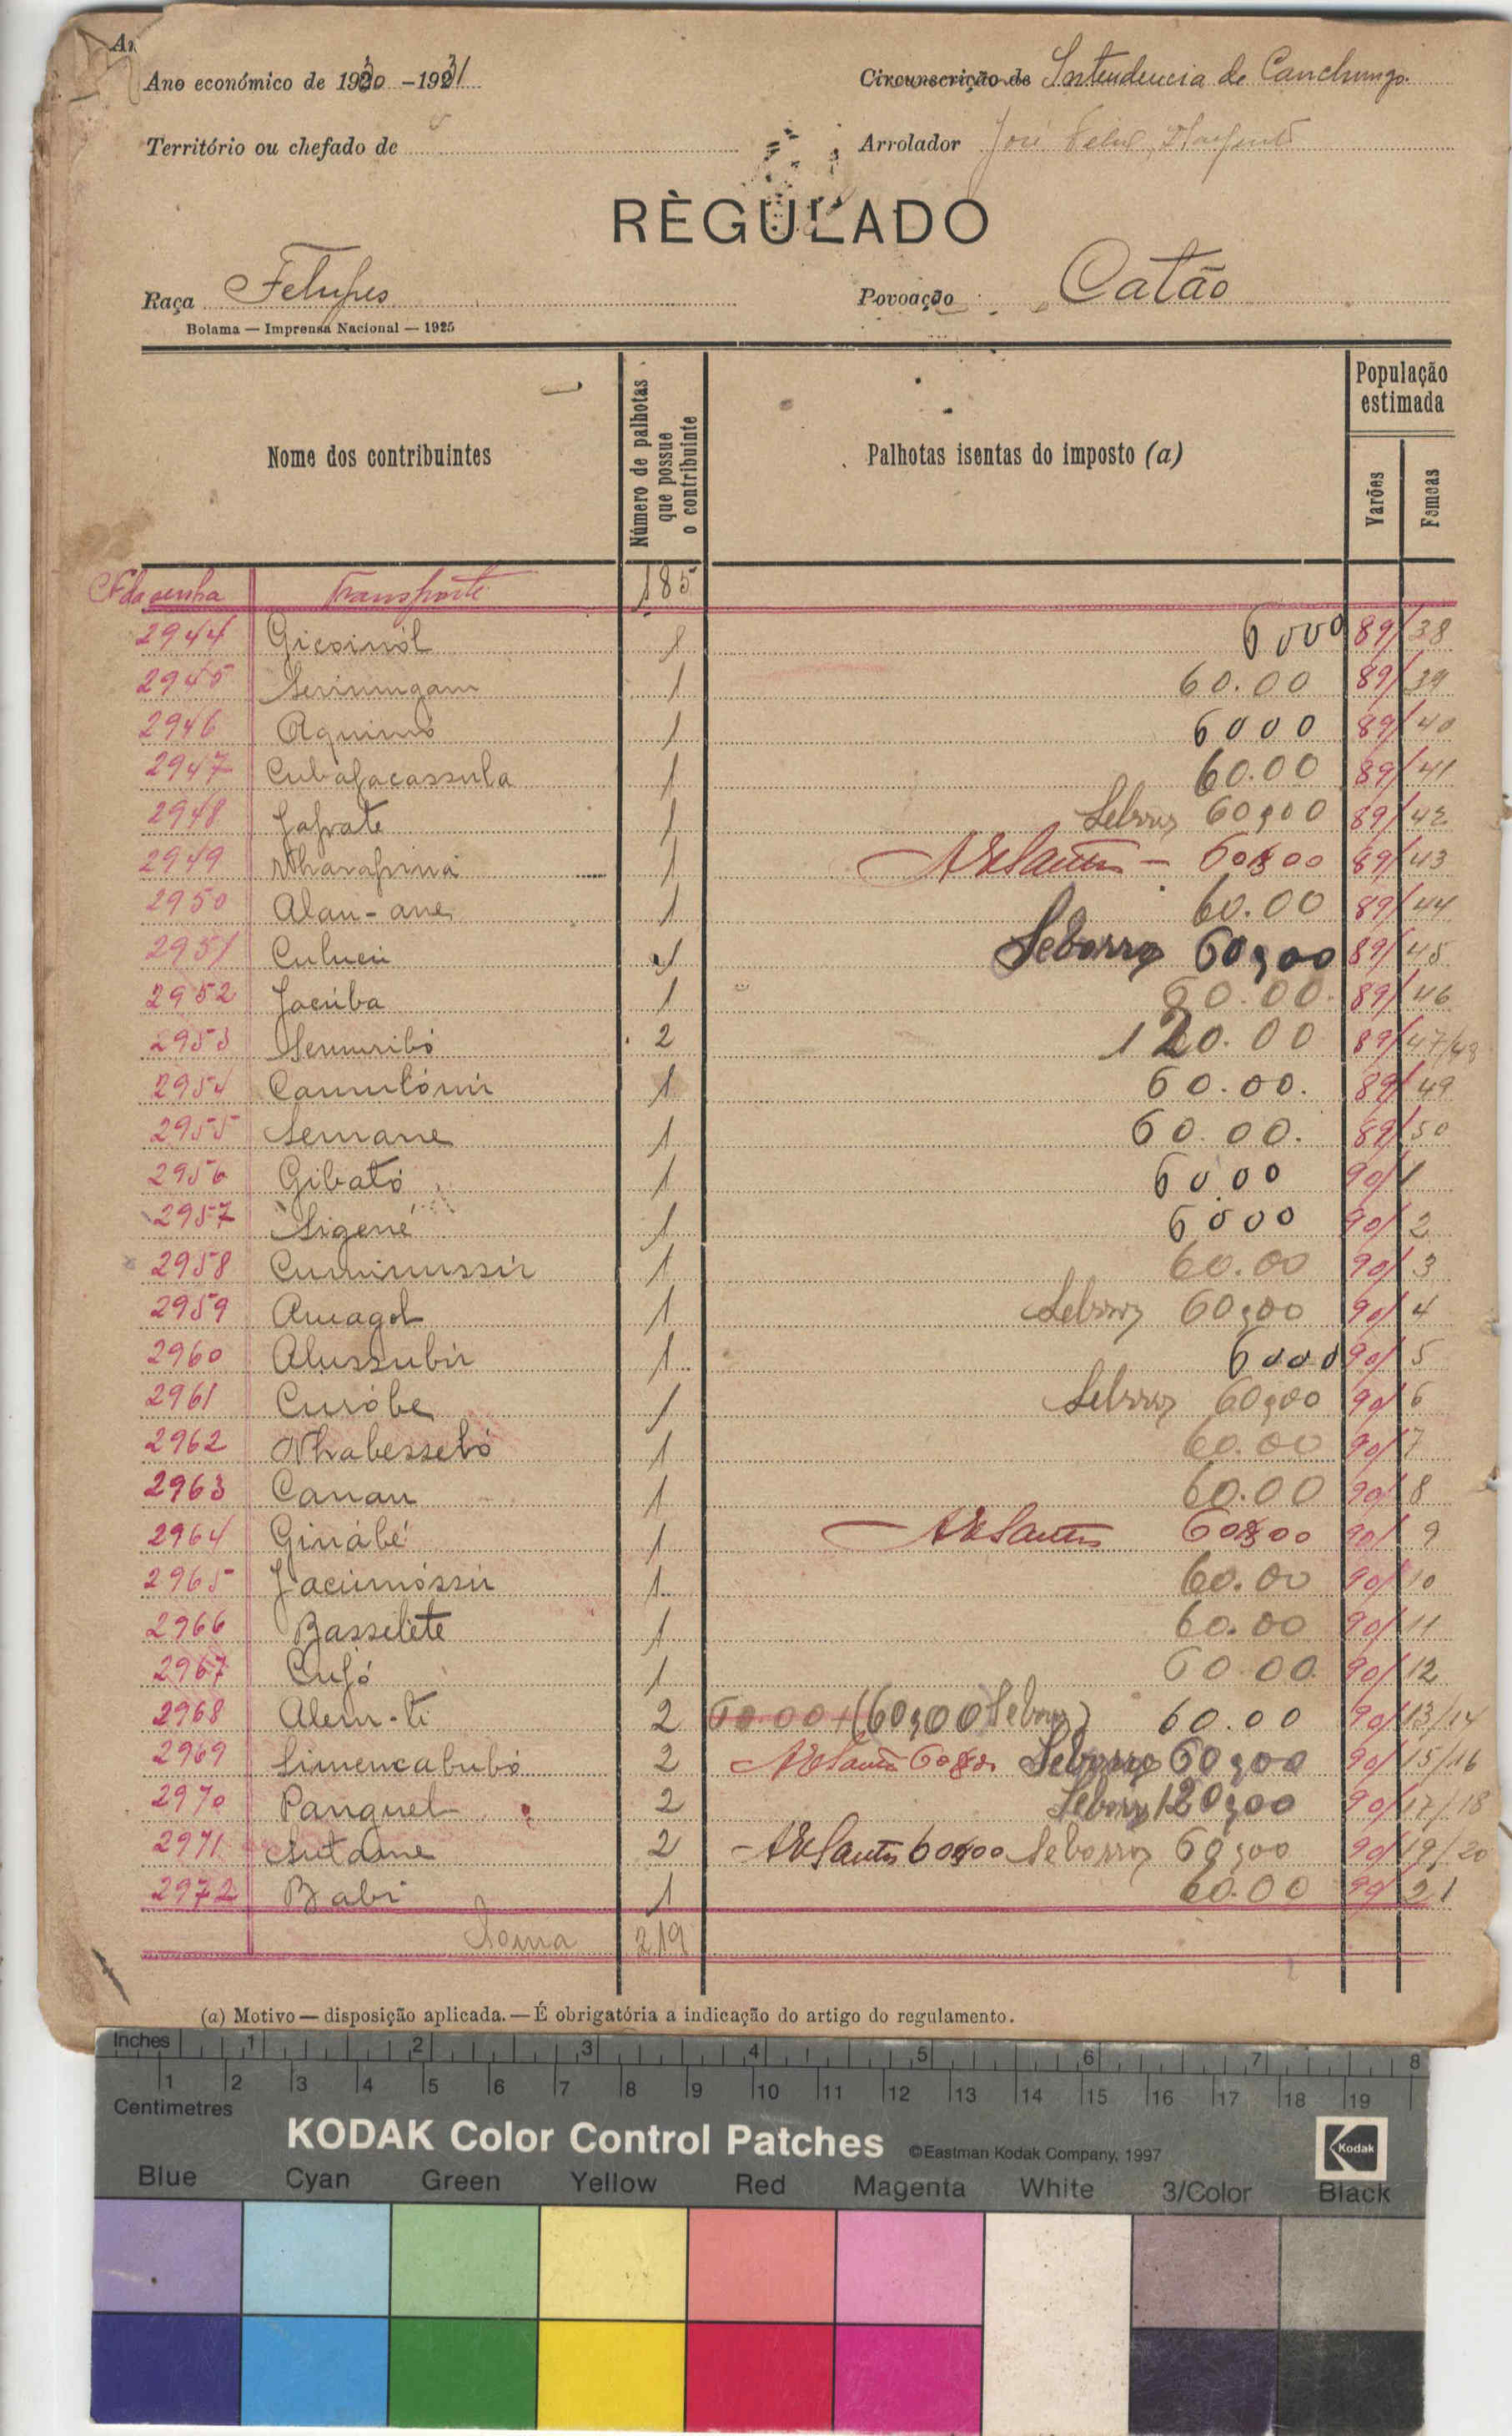 Ano económico de 1930 - 1931 Circunscrição de Intendencia de Canchungo
Território ou chefado de Arrolador José
RÈGULADO
Raça Felupes Povoação Catão
Bolama — Imprensa Nacional — 1925
Nome dos contribuintes Número de palhotas que possue o contribuinte Palhotas isentas do imposto (a) População estimada Varões Femeas
Nº da senha Transporte 185
2944 Gicsinól 1 6000 89/38
2945 1 60.00 89/39
2946 1 6000 89/40
2947 Cubafacassula 1 60.00 89/41
2948 Jafrate 1 60,00 89/42
2949 1 60$00 89/43
2950 Alan-ane 1 60.00 89/44
2951 1 Seborro 60,00 89/45
2952 Jacúba 1 60.00. 89/46
2953 2 120.00 89/47/48
2954 1 60.00. 89/49
2955 Semane 1 60.00. 89/50
2956 Gibató 1 6000 90/1
2957 Sigené 1 6000 90/2
2958 1 60.00 90/3
2959 Amagol 1 60,00 90/4
2960 Alussubir 1 6000 90/5
2961 Curóbe 1 60,00 90/6
2962 Nhabessebó 1 60.00 90/7
2963 Canan 1 60.00 90/8
2964 Ginábé 1 60$00 90/9
2965 Jacumóssir 1 60.00 90/10
2966 Basselete 1 60.00 90/11
2967 Cufó 1 60.00 90/12
2968 Alem-ti 2 60.00+(60,00 ) 60.00 90/13/14
2969 Simencabubó 2 Seborro 60,00 90/15/16
2970 Panguel 2 120,00 90/17/18
2971 2 60$00 Seborro 60,00 90/19/20
2972 Babi 1 60.00 90/21
Soma 219
(a) Motivo — disposição aplicada. — É obrigatória a indicação do artigo do regulamento.
Inches 1 2 3 4 5 6 7 8
1 2 3 4 5 6 7 8 9 10 11 12 13 14 15 16 17 18 19
Centimetres
KODAK Color Control Patches ©Eastman Kodak Company, 1997 Kodak
Blue Cyan Green Yellow Red Magenta White 3/Color Black